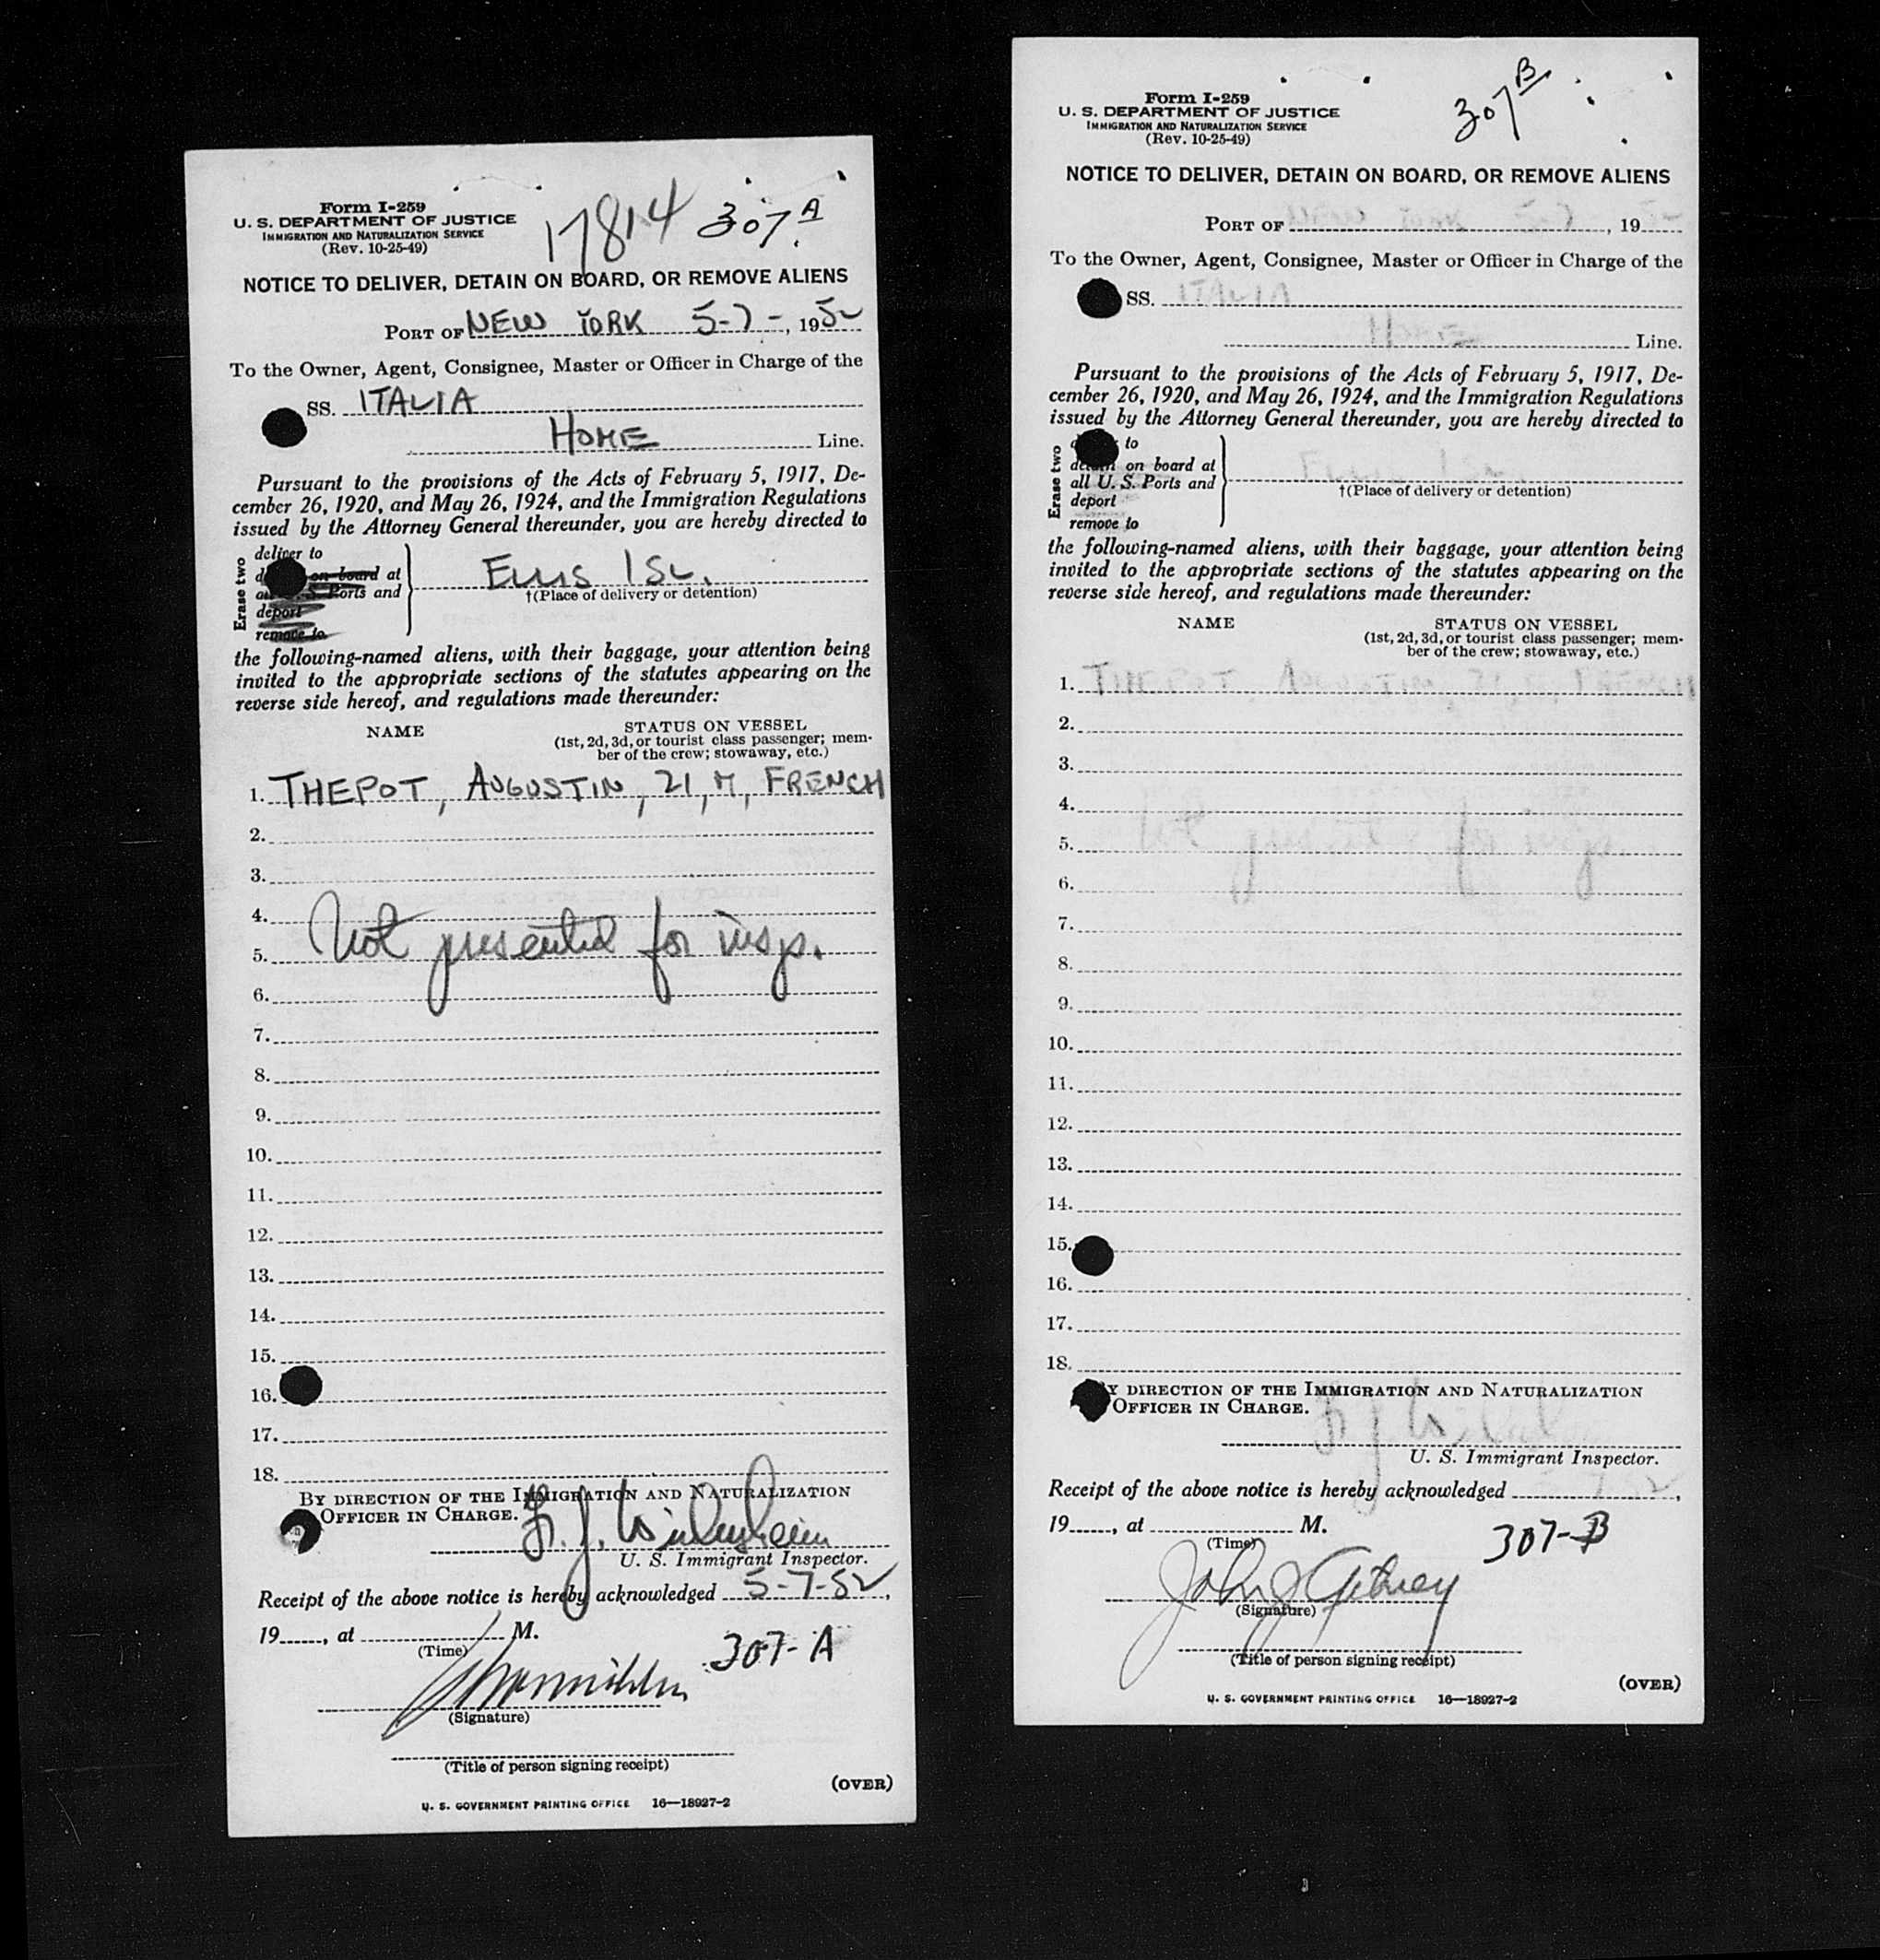 Form I-259
U. S. DEPARTMENT OF JUSTICE
IMMIGRATION AND NATURALIZATION SERVICE
(Rev. 10-25-49)
17814 307 A
NOTICE TO DELIVER, DETAIN ON BOARD, OR REMOVE ALIENS
PORT OF NEW YORK 5-7-, 1952
To the Owner, Agent, Consignee, Master or Officer in Charge of the
SS. ITALIA
HOME Line.
Pursuant to the provisions of the Acts of February 5, 1917, De-
cember 26, 1920, and May 26, 1924, and the Immigration Regulations
issued by the Attorney General thereunder, you are hereby directed to
Erase two
deliver to
on board at
Ports and
deport
remove to
ELLIS ISL.
†(Place of delivery or detention)
the following-named aliens, with their baggage, your attention being
invited to the appropriate sections of the statutes appearing on the
reverse side hereof, and regulations made thereunder:
NAME STATUS ON VESSEL
(1st, 2d, 3d, or tourist class passenger; mem-
ber of the crew; stowaway, etc.)
1. THEPOT, AUGUSTIN, 21, M, FRENCH
2.
3.
4.
5. Not presented for insp.
6.
7.
8.
9.
10.
11.
12.
13.
14.
15.
16.
17.
18.
BY DIRECTION OF THE IMMIGRATION AND NATURALIZATION
OFFICER IN CHARGE.
U. S. Immigrant Inspector.
Receipt of the above notice is hereby acknowledged 5-7-52,
19, at M.
(Time)
307-A
(Signature)
(Title of person signing receipt)
(OVER)
U. S. GOVERNMENT PRINTING OFFICE 16—18927-2
Form I-259
U. S. DEPARTMENT OF JUSTICE
IMMIGRATION AND NATURALIZATION SERVICE
(Rev. 10-25-49)
307 B
NOTICE TO DELIVER, DETAIN ON BOARD, OR REMOVE ALIENS
PORT OF , 19
To the Owner, Agent, Consignee, Master or Officer in Charge of the
SS. ITALIA
HOME Line.
Pursuant to the provisions of the Acts of February 5, 1917, De-
cember 26, 1920, and May 26, 1924, and the Immigration Regulations
issued by the Attorney General thereunder, you are hereby directed to
Erase two
to
detain on board at
all U. S. Ports and
deport
remove to
†(Place of delivery or detention)
the following-named aliens, with their baggage, your attention being
invited to the appropriate sections of the statutes appearing on the
reverse side hereof, and regulations made thereunder:
NAME STATUS ON VESSEL
(1st, 2d, 3d, or tourist class passenger; mem-
ber of the crew; stowaway, etc.)
1. THEPOT, AUGUSTIN, 21, M, FRENCH
2.
3.
4.
5. Not presented for insp.
6.
7.
8.
9.
10.
11.
12.
13.
14.
15.
16.
17.
18.
BY DIRECTION OF THE IMMIGRATION AND NATURALIZATION
OFFICER IN CHARGE.
U. S. Immigrant Inspector.
Receipt of the above notice is hereby acknowledged ,
19, at M.
(Time)
307-B
John J Gibney
(Signature)
(Title of person signing receipt)
(OVER)
U. S. GOVERNMENT PRINTING OFFICE 16—18927-2